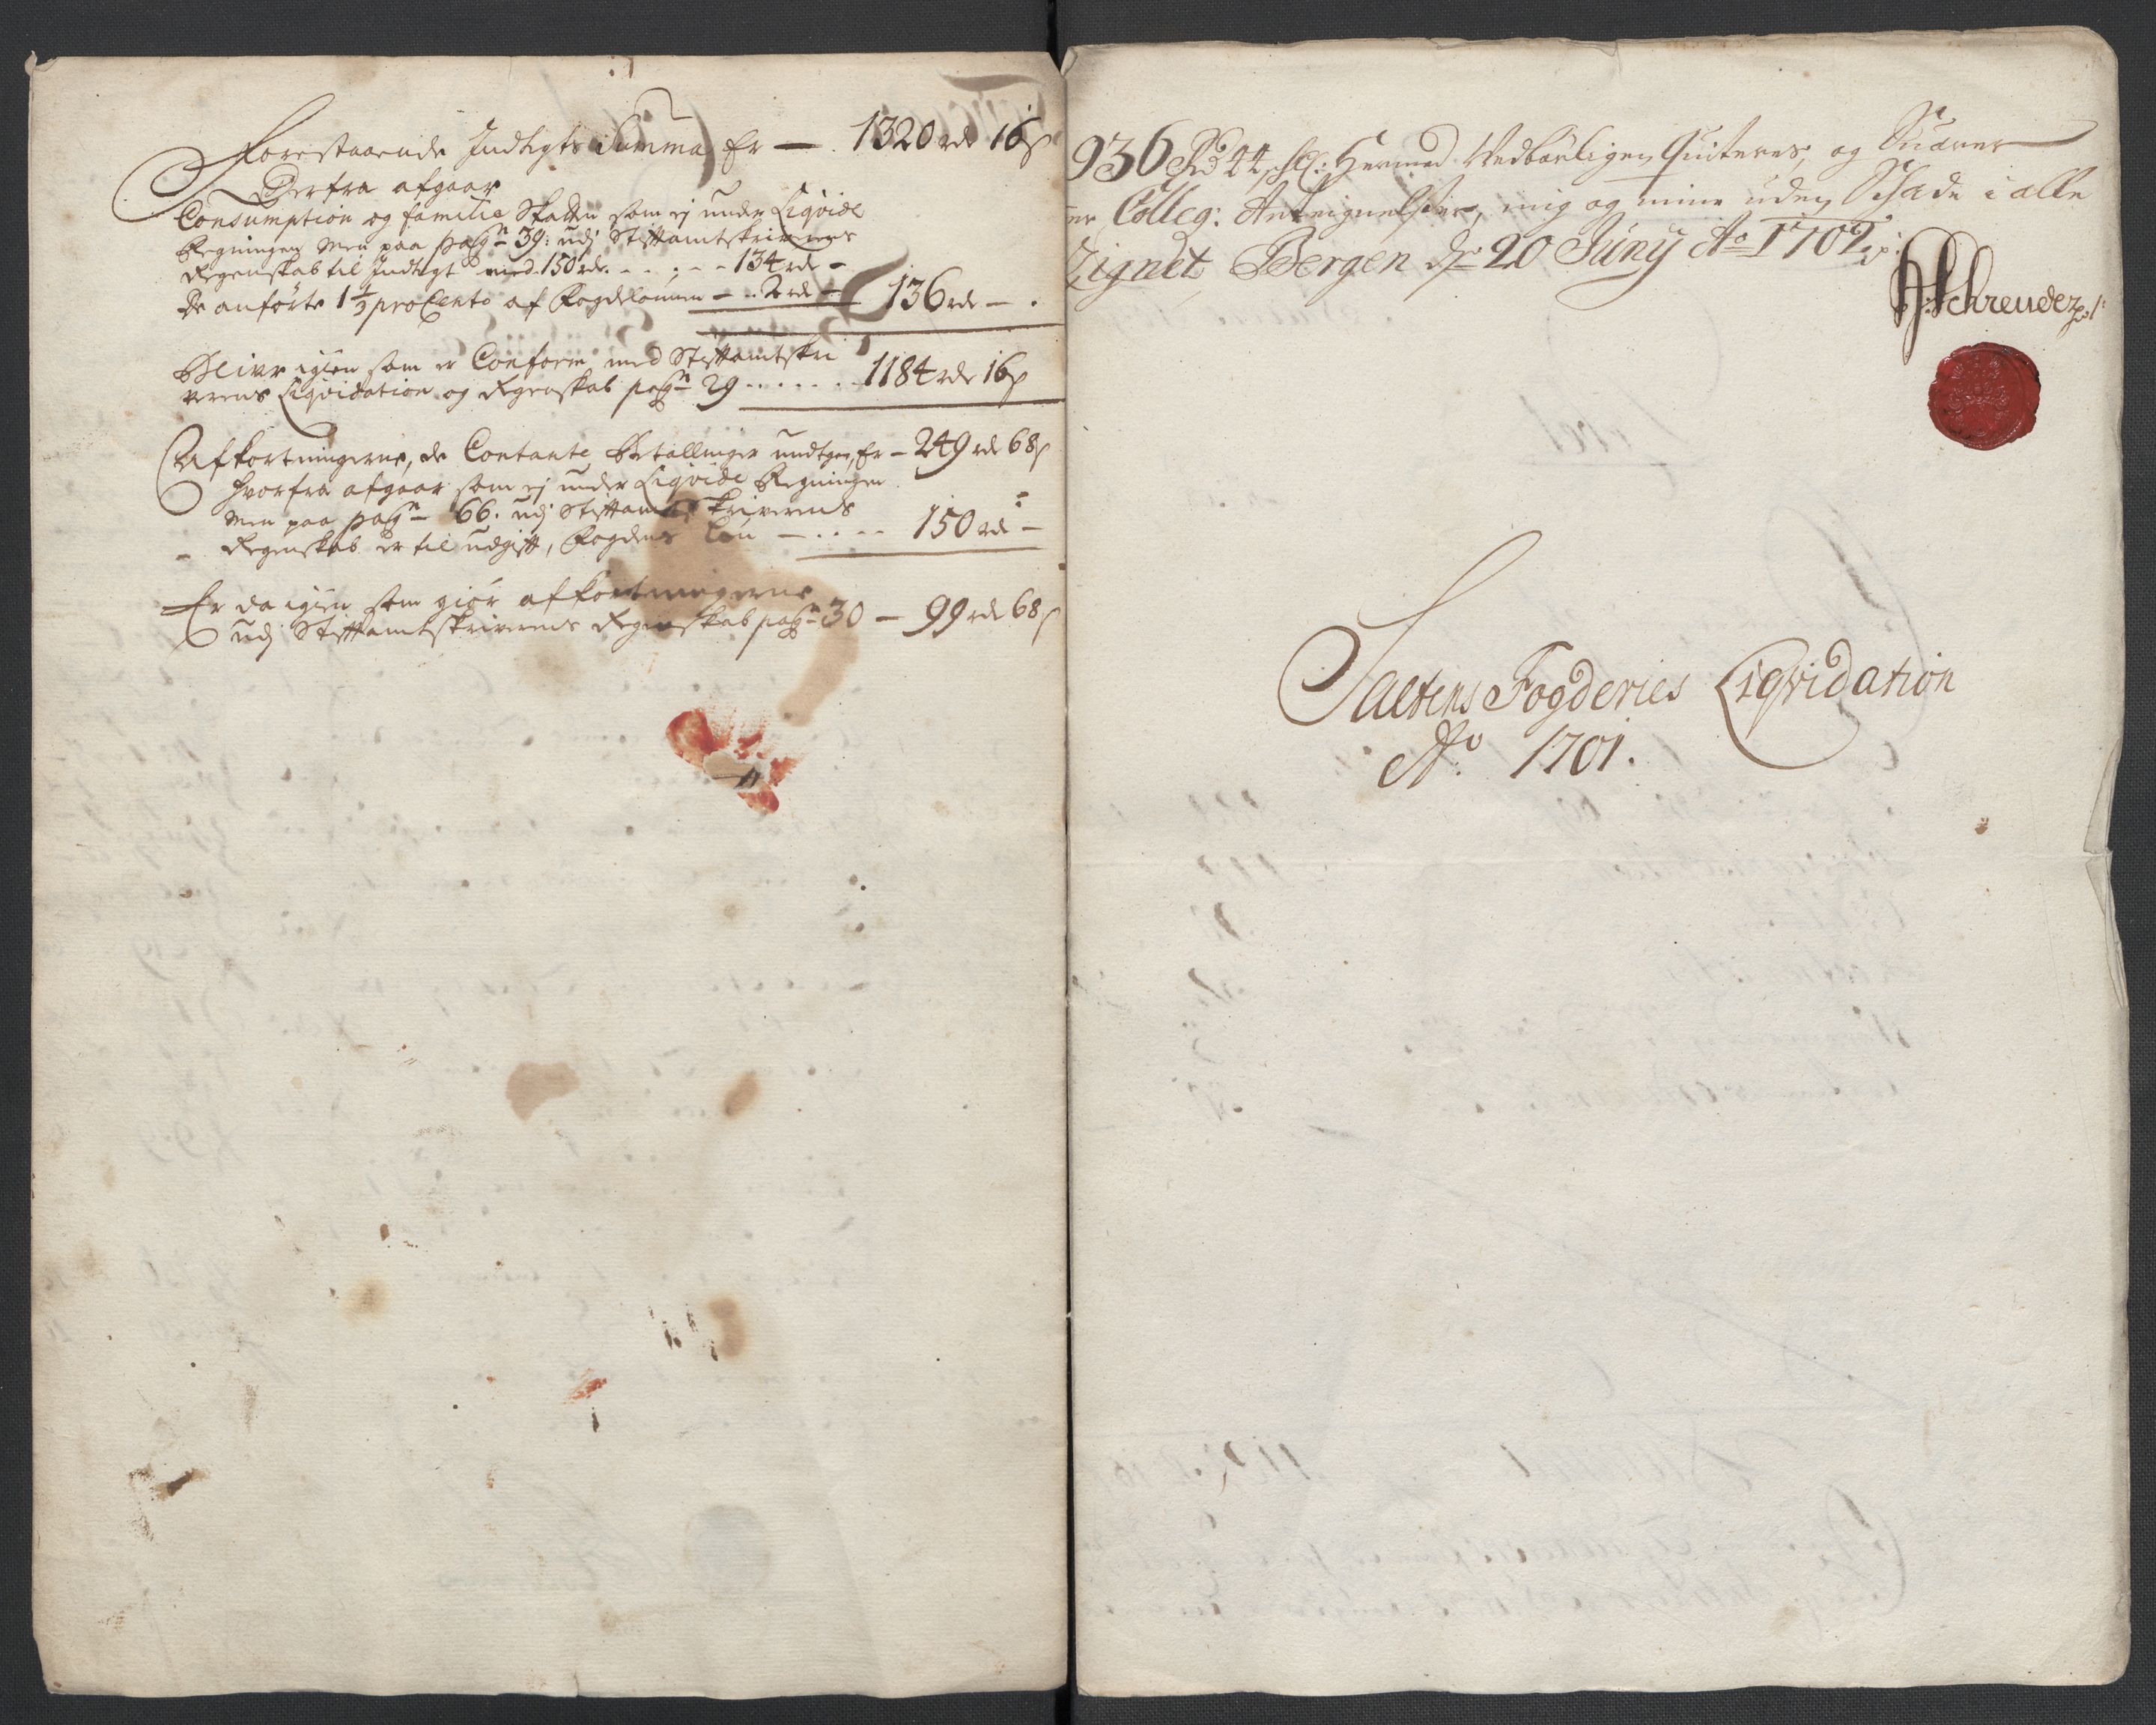 Forestaaende Indtegts Summa Er — 1320 rdr 16 s
Derfra afgaar
Consumption og familie Skatten som ej under Liqvide
Regningen men paa pag: 39: udj Stiftamtskriverens
Regenskab til Indtegt med 150 rdr. - - - - 134 rdr -
de anførte 1½ pro Cento af Fogdelønnen - .. 2 rdr - 136 rdr - .
Bliver igien som er Conform med Stiftamtskri
verens Liqvidation og Regenskab pag: 29 . . . . . . 1184 rdr 16 s
Afkortningerne, de Contante Betallinger undtagen, Er - 249 rdr 68 s
hvorfra afgaar som ej under Liqvide Regningen
men paa pag: 66. udj Stiftamtskriverens
Regenskab er til udgift, Fogdens Løn - . . . - - 150 rdr -
Er da igien som giør afkortningerne
udj Stiftamtskriverens Regenskab pag: 30 - 99 rdr 68 s
936 Rd 44 sl: Hermed Vedbørligen Quiteres, og Suarer
Colleg: Antegnelser, mig og mine uden Schade i alle
Zignet Bergen d 20 Juny Ao 1702
Schreuder
Saltens Fogderies Liqvidation
Ao. 1701.